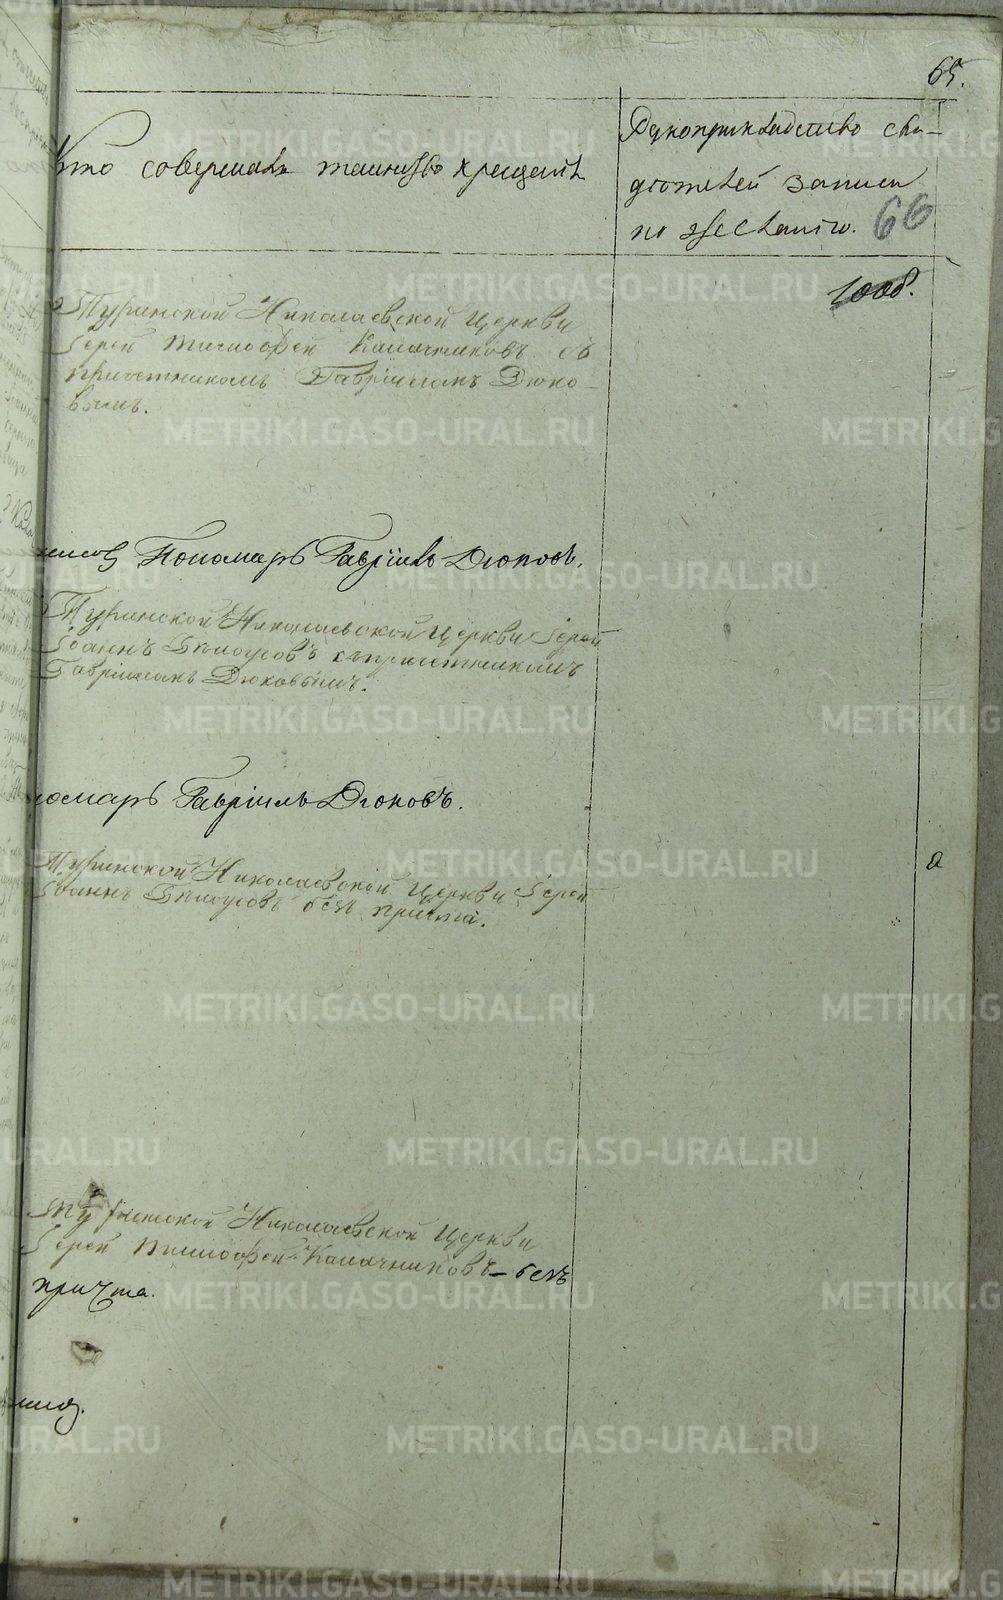 65.
Кто совершалъ таинство крещенiя
Рукоприкладство сви-
дѣтелей записи
по желанiю.
66
Туринской Николаевской Церкви
Iерей Тимофей Калачниковъ съ
причетникомъ Гаврiиломъ Дюко-
вымъ.
Пономарь Гаврiилъ Дюковъ.
Туринской Николаевской Церкви Iерей
Iоаннъ Бѣлоусовъ съ причетникомъ
Гаврiиломъ Дюковымъ.
номарь Гаврiилъ Дюковъ.
Туринской Николаевской Церкви Iерей
Iоаннъ Бѣлоусовъ безъ причта.
Туринской Николаевской Церкви
Iерей Тимофей Калачниковъ – безъ
причта.
METRIKI.GASO-URAL.RU